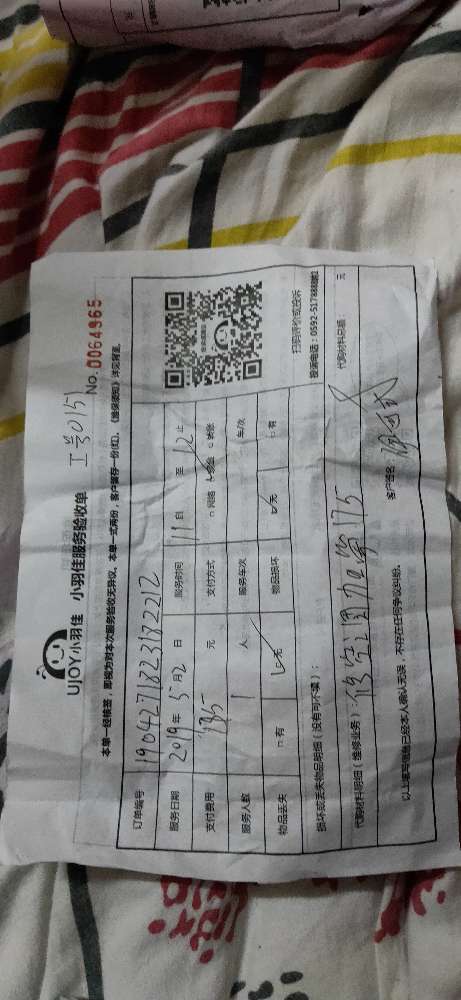 UJOY小羽佳 小羽佳服务验收单 工号015
No. 0064965
本单一经核签，即视为对本次服务验收无异议。本单一式两份，客户留存一份(红)。《维保须知》详见背面。
订单编号 1904271823182212
服务日期 2019年5月2日 服务时间 11 自 至 12 止
支付费用 元 支付方式 □网络 □现金 □转账
服务人数 1 人 服务车次 车/次
物品丢失 □有 无 物品损坏 无 □有
扫码评价或投诉
损坏或丢失物品明细（没有可不填）： 投诉电话：0592-5178888转1
代购材料明细（维修业务）： 175 代购材料总额： 元
以上填写信息已经本人确认无误，不存在任何争议纠纷。 客户签名